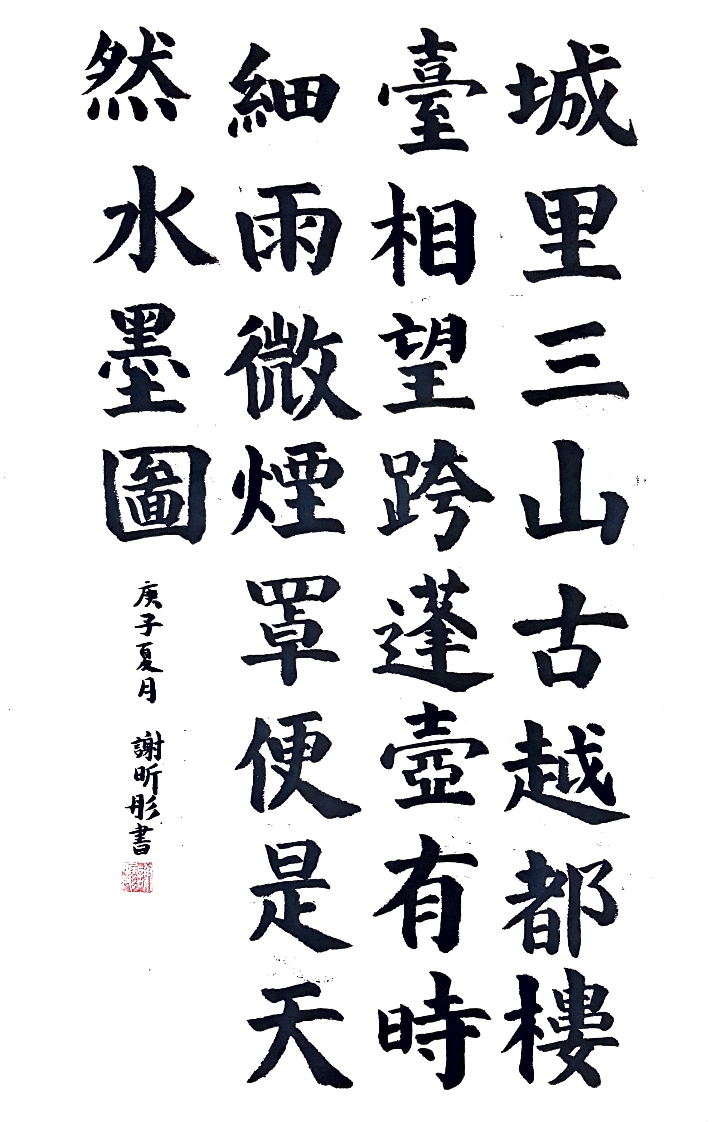 城里三山古越都樓
臺相望跨蓬壺有時
細雨微煙罩便是天
然水墨圖
庚子夏月 謝昕彤書